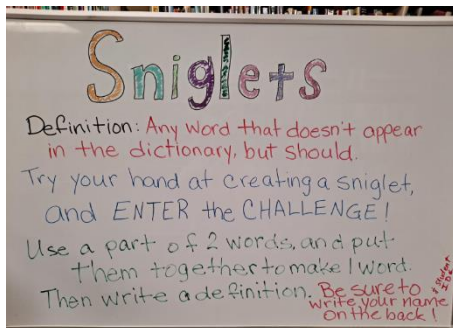 Sniglets
Definition: Any word that doesn't appear
in the dictionary, but should.
Try your hand at creating a sniglet,
and ENTER the CHALLENGE!
Use a part of 2 words, and put
them together to make 1 word.
Then write a definition. Be sure to
write your name
on the back!
+ Student
ID#